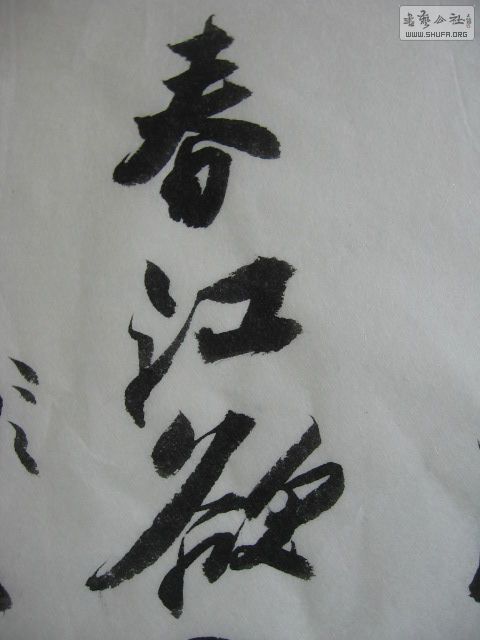 春江欲
书艺公社
WWW.SHUFA.ORG